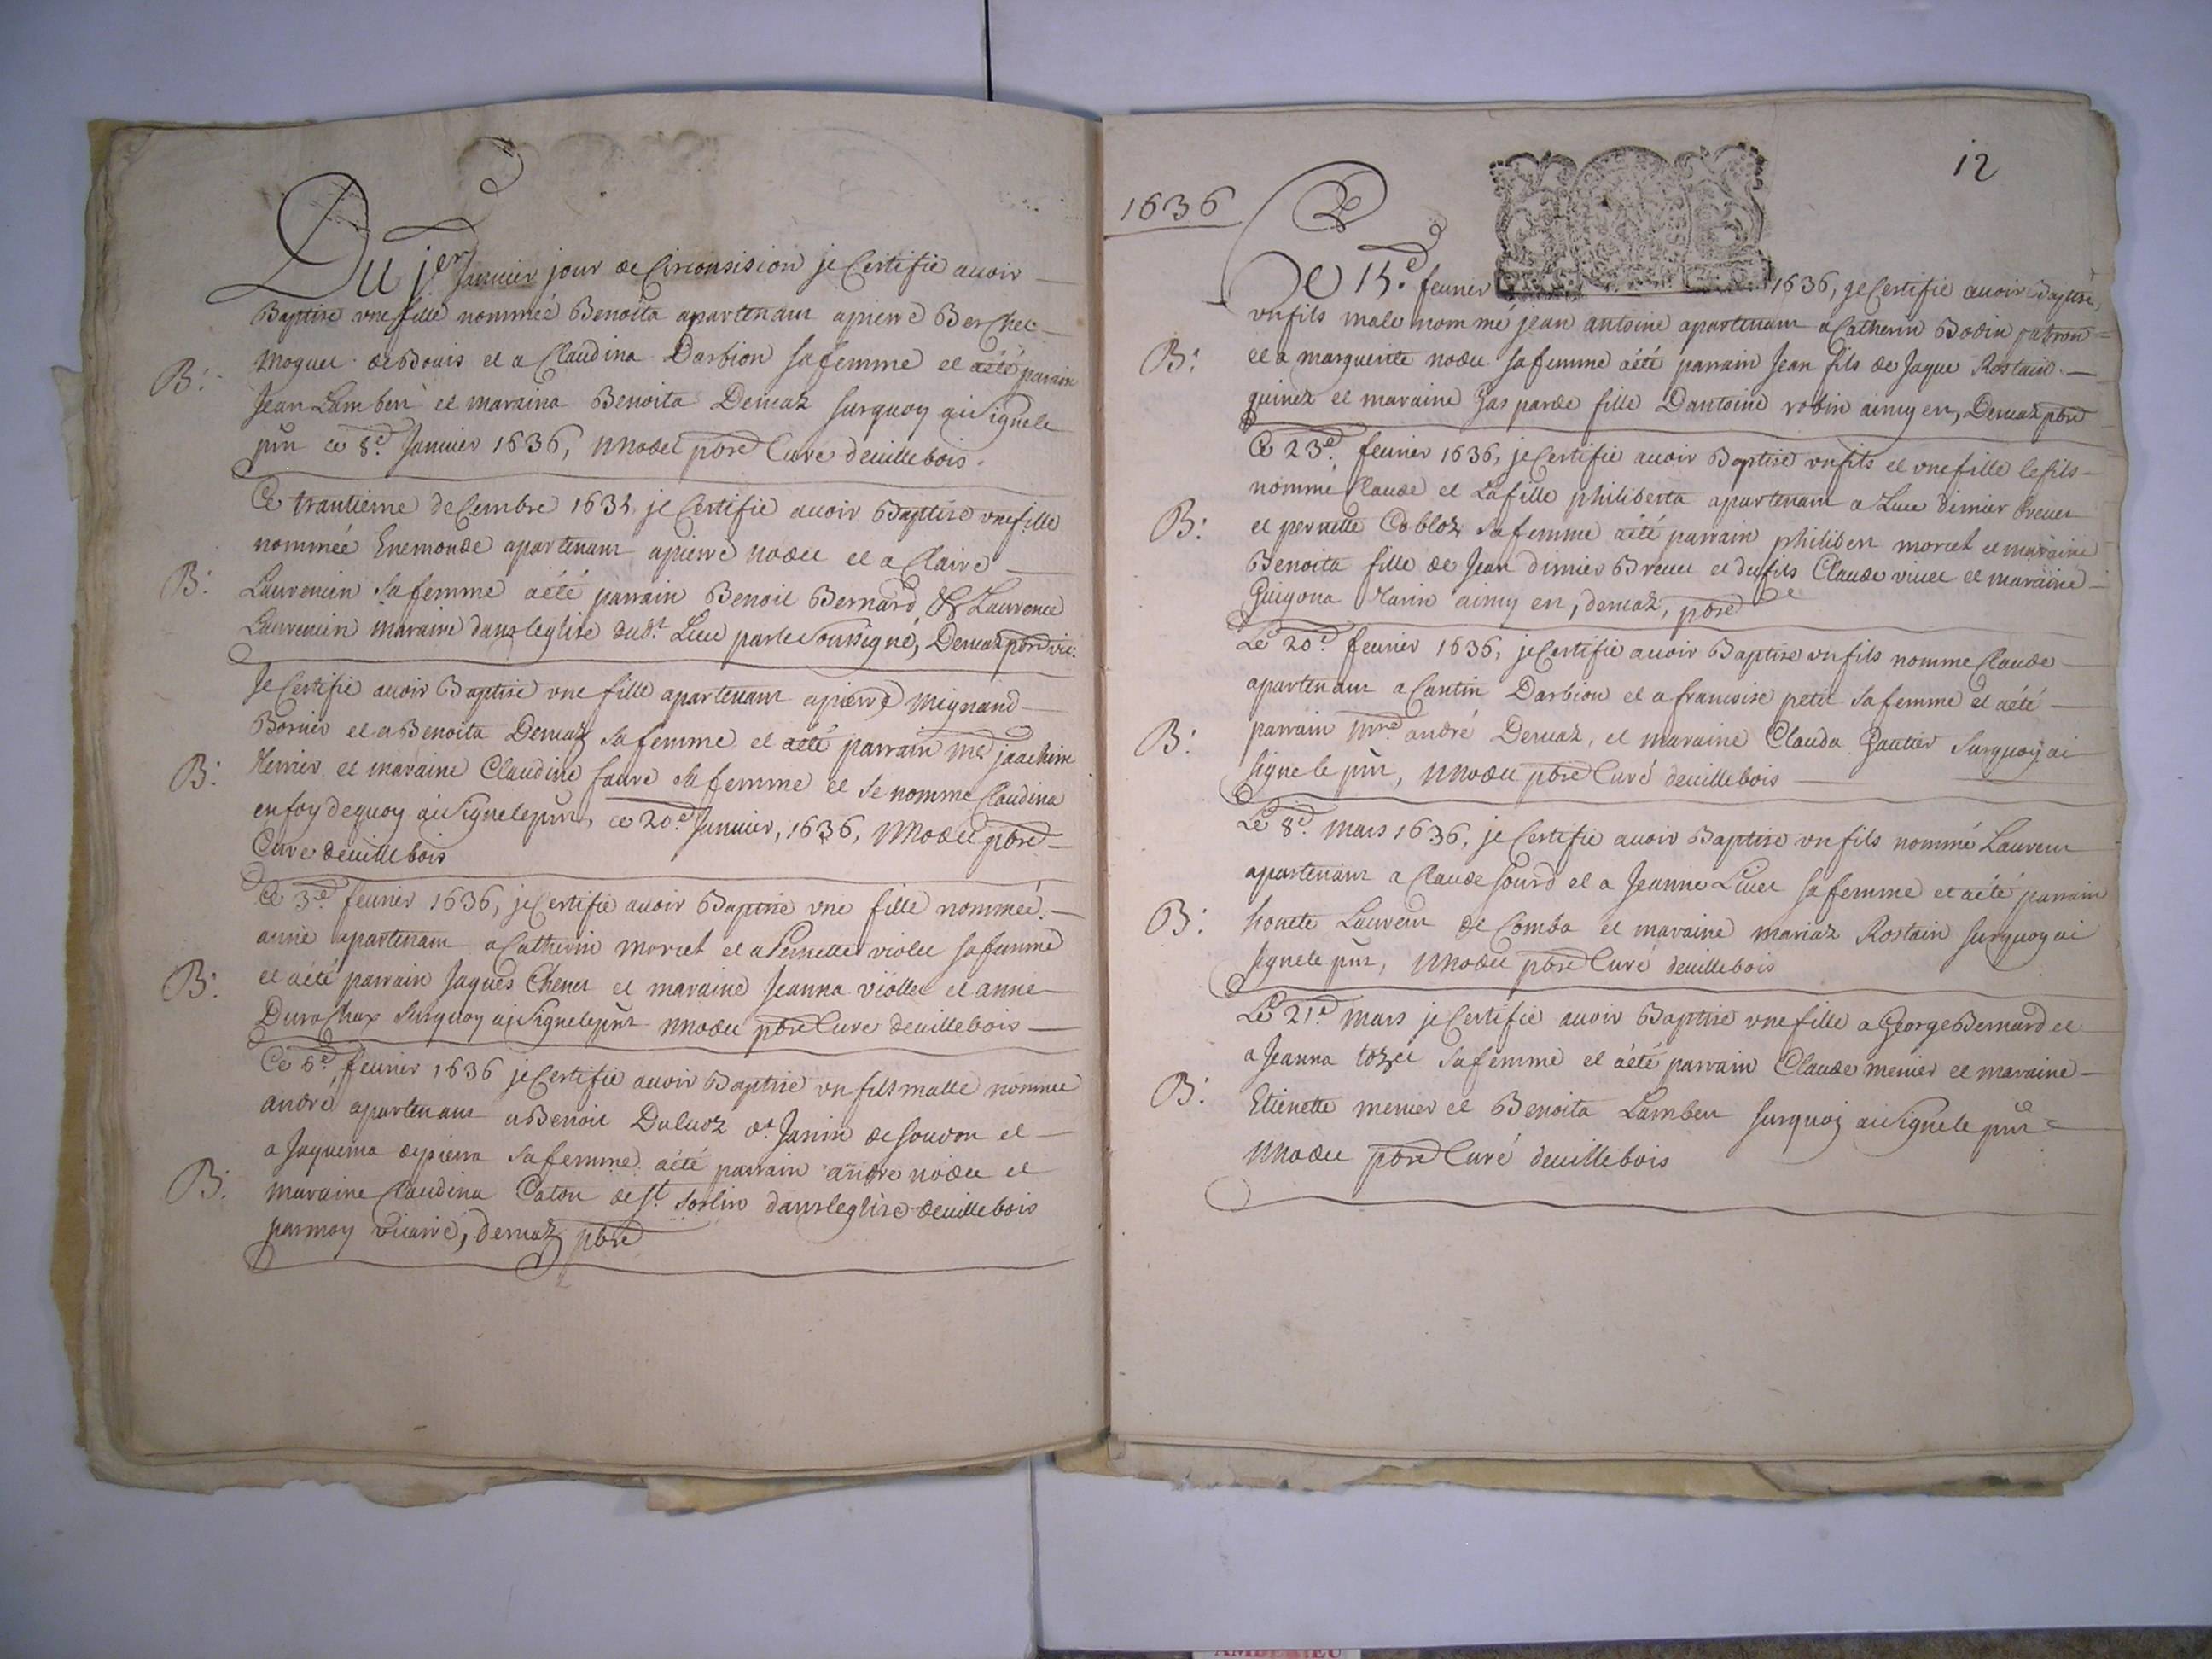 Du jer Januier jour de Circonsision je Certifie auoir
Baptise vne fille nommeé Benoita apartenant apierre Berchet
Moguet de Bouis et a Claudina Darbion sa femme et aeté parrain
B: Jean Lambert et maraina Benoita Demaz surquoy ai signe le
pnt ce 8e Januier 1636, MNodet pbre Curé deuillebois.
Ce trantieme deCembre 1635 je Certifie auoir Baptise vne fille
nommeé Enemonde apartenant apierre nodet et a Claire
B: Laurencin sa femme aété parrain Benoit Bernard & Laurence
Laurencin maraine dans leglise dudt Lieu par le soussigné, Demaz pbre vic:
Je Certifie auoir Baptise vne fille apartenant apierre Mignand
Bornier et a Benoita Demaz sa femme et aeté parrain Me joachim
B: et maraine Claudine faure sa femme et se nomme Claudina
en foy dequoy ai signe le pnt, ce 20e Januier, 1636, MNodet pbre
Cure deuillebois
Ce 3e feurier 1636, je Certifie auoir Baptise vne fille nommeé.
anne apartenant a Catherin moriet et a Pernette violet sa femme
B: et aété parrain Jaques Chenet et maraine Jeanna viollet et anne
Durochax surquoy ai signe le pnt MNodet pbre Cure deuillebois
Ce 6e feurier 1636 je Certifie auoir Baptise vn fils malle nomme
andre apartenant a Benoit Duluiz dt Janin de soudon et
a Jaquema depierra sa femme aété parrain andre nodet et
B: maraine Claudina Caton de st sorlin dans leglise deuillebois
par moy vicaire, demaz pbre
12
1636
Ce 15e feurier 1636, je Certifie auoir Baptise,
vn fils male nommé jean antoine apartenant a Catherin Bodin patron
B: et a marguerite nodet sa femme aété parrain Jean fils de Jaque Rostain
guinet et maraine Gasparde fille Dantoine robin ainsy en, Demaz pbre
Ce 23e feurier 1636, je Certifie auoir Baptise vn fils et vne fille le fils
nomme Claude et La fille philiberta apartenant a Luc dimier breuet
B: et pernette Cobloz sa femme aété parrain philibert moriet et maraine
Benoita fille de Jean dimier Breuet et du fils Claude viuet et maraine
Guigona Marin ainsy en, demaz, pbre
Le 20e feurier 1636, je Certifie auoir Baptise vn fils nomme Claude
apartenant a Cantin Darbion et a francoise petit sa femme et aété
B: parrain Mre andré Demaz, et maraine Clauda Gautier surquoy ai
signe le pnt, MNodet pbre Curé deuillebois
Le 8e mars 1636, je Certifie auoir Baptise vn fils nommé Laurent
apartenant a Claude sourd et a Jeanne Liuet sa femme et aété parrain
B: honete Laurent de Comba et maraine mariaz Rostain surquoy ai
signe le pnt, MNodet pbre Curé deuillebois
Le 21e mars je Certifie auoir Baptise vne fille a George Bernard et
a Jeanna tozet sa femme et aété parrain Claude menier et maraine
B: Etienette menier et Benoita Lambert surquoy ai signe le pnt
MNodet pbre Curé deuillebois